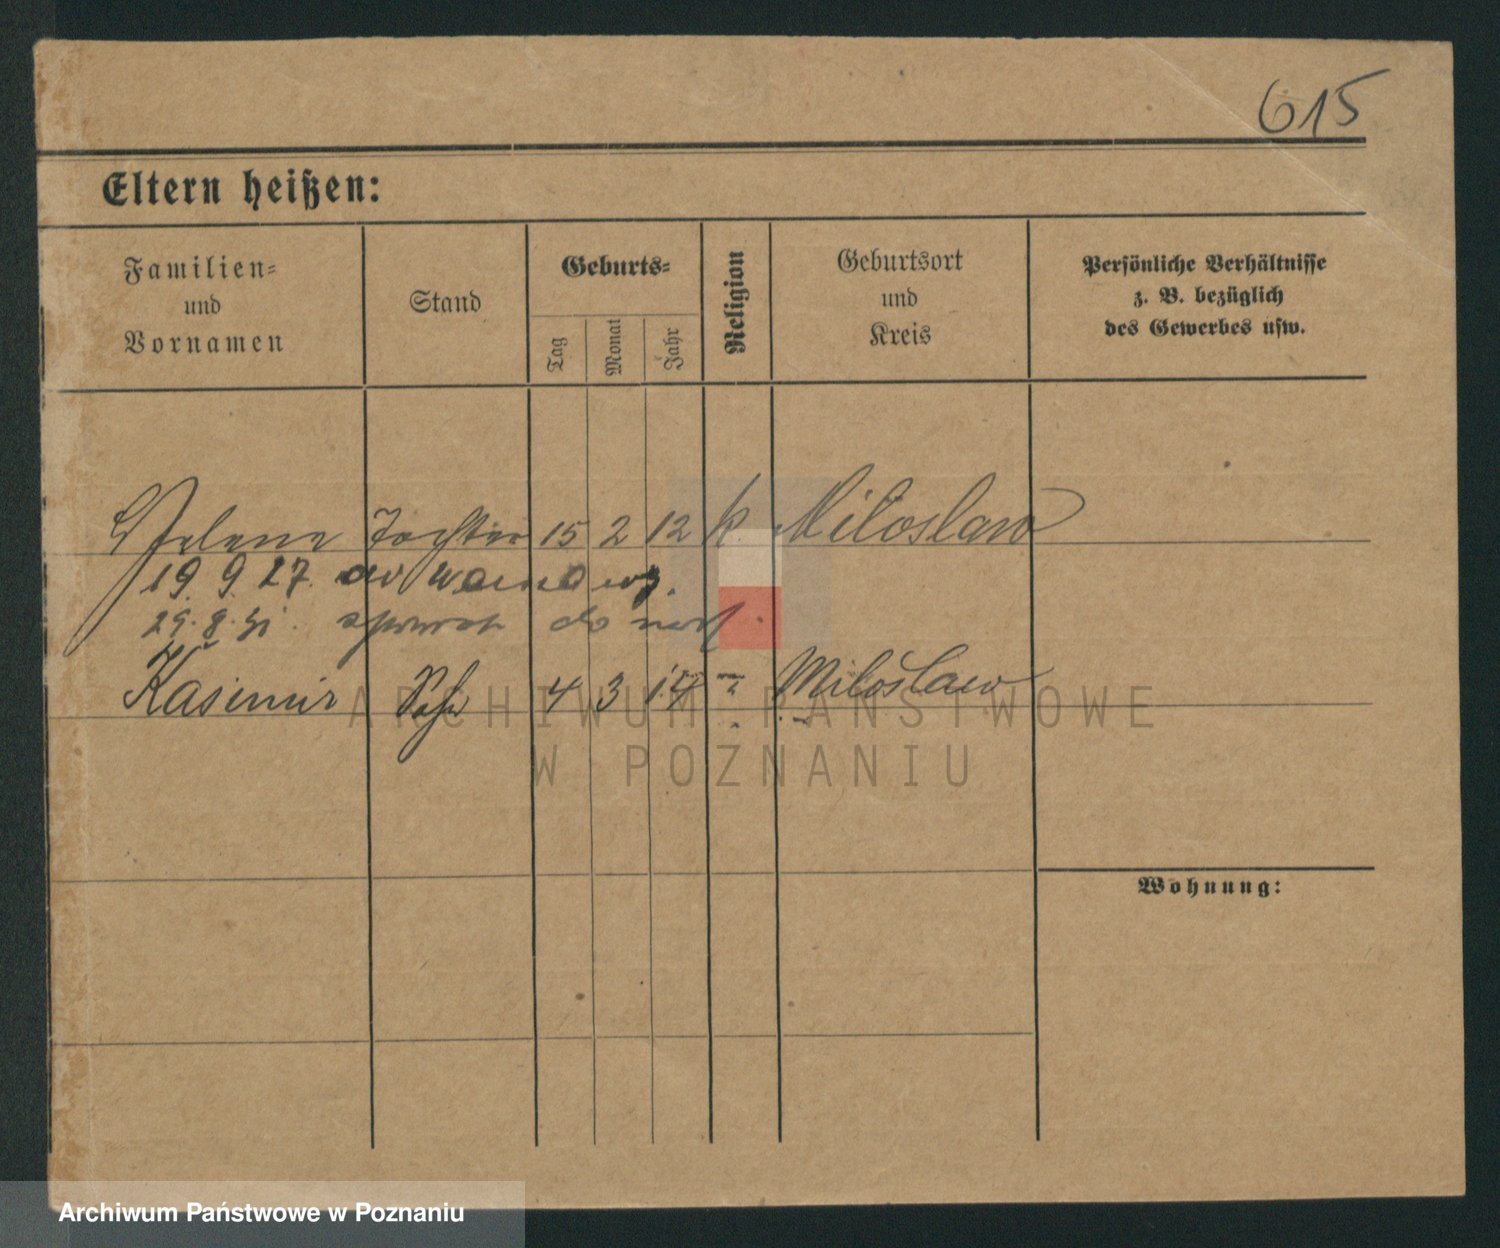 615
Eltern heißen:
Familien-
und
Vornamen
Stand
Geburts-
Tag
Monat
Jahr
Religion
Geburtsort
und
Kreis
Persönliche Verhältnisse
z. B. bezüglich
des Gewerbes usw.
Helene Tochter 15 2 12 k. Miloslaw
19. 9. 27.
29. 8. 31.
Kasimir Sohn 4 3 14 Miloslaw
Wohnung:
ARCHIWUM PAŃSTWOWE
W POZNANIU
Archiwum Państwowe w Poznaniu